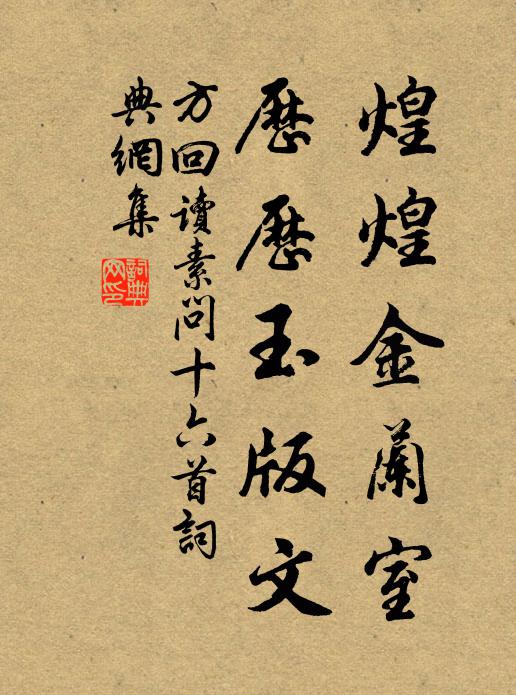 煌煌金蘭室
歷歷玉版文
方回讀素問十六首詞
典網集
詞典
网印